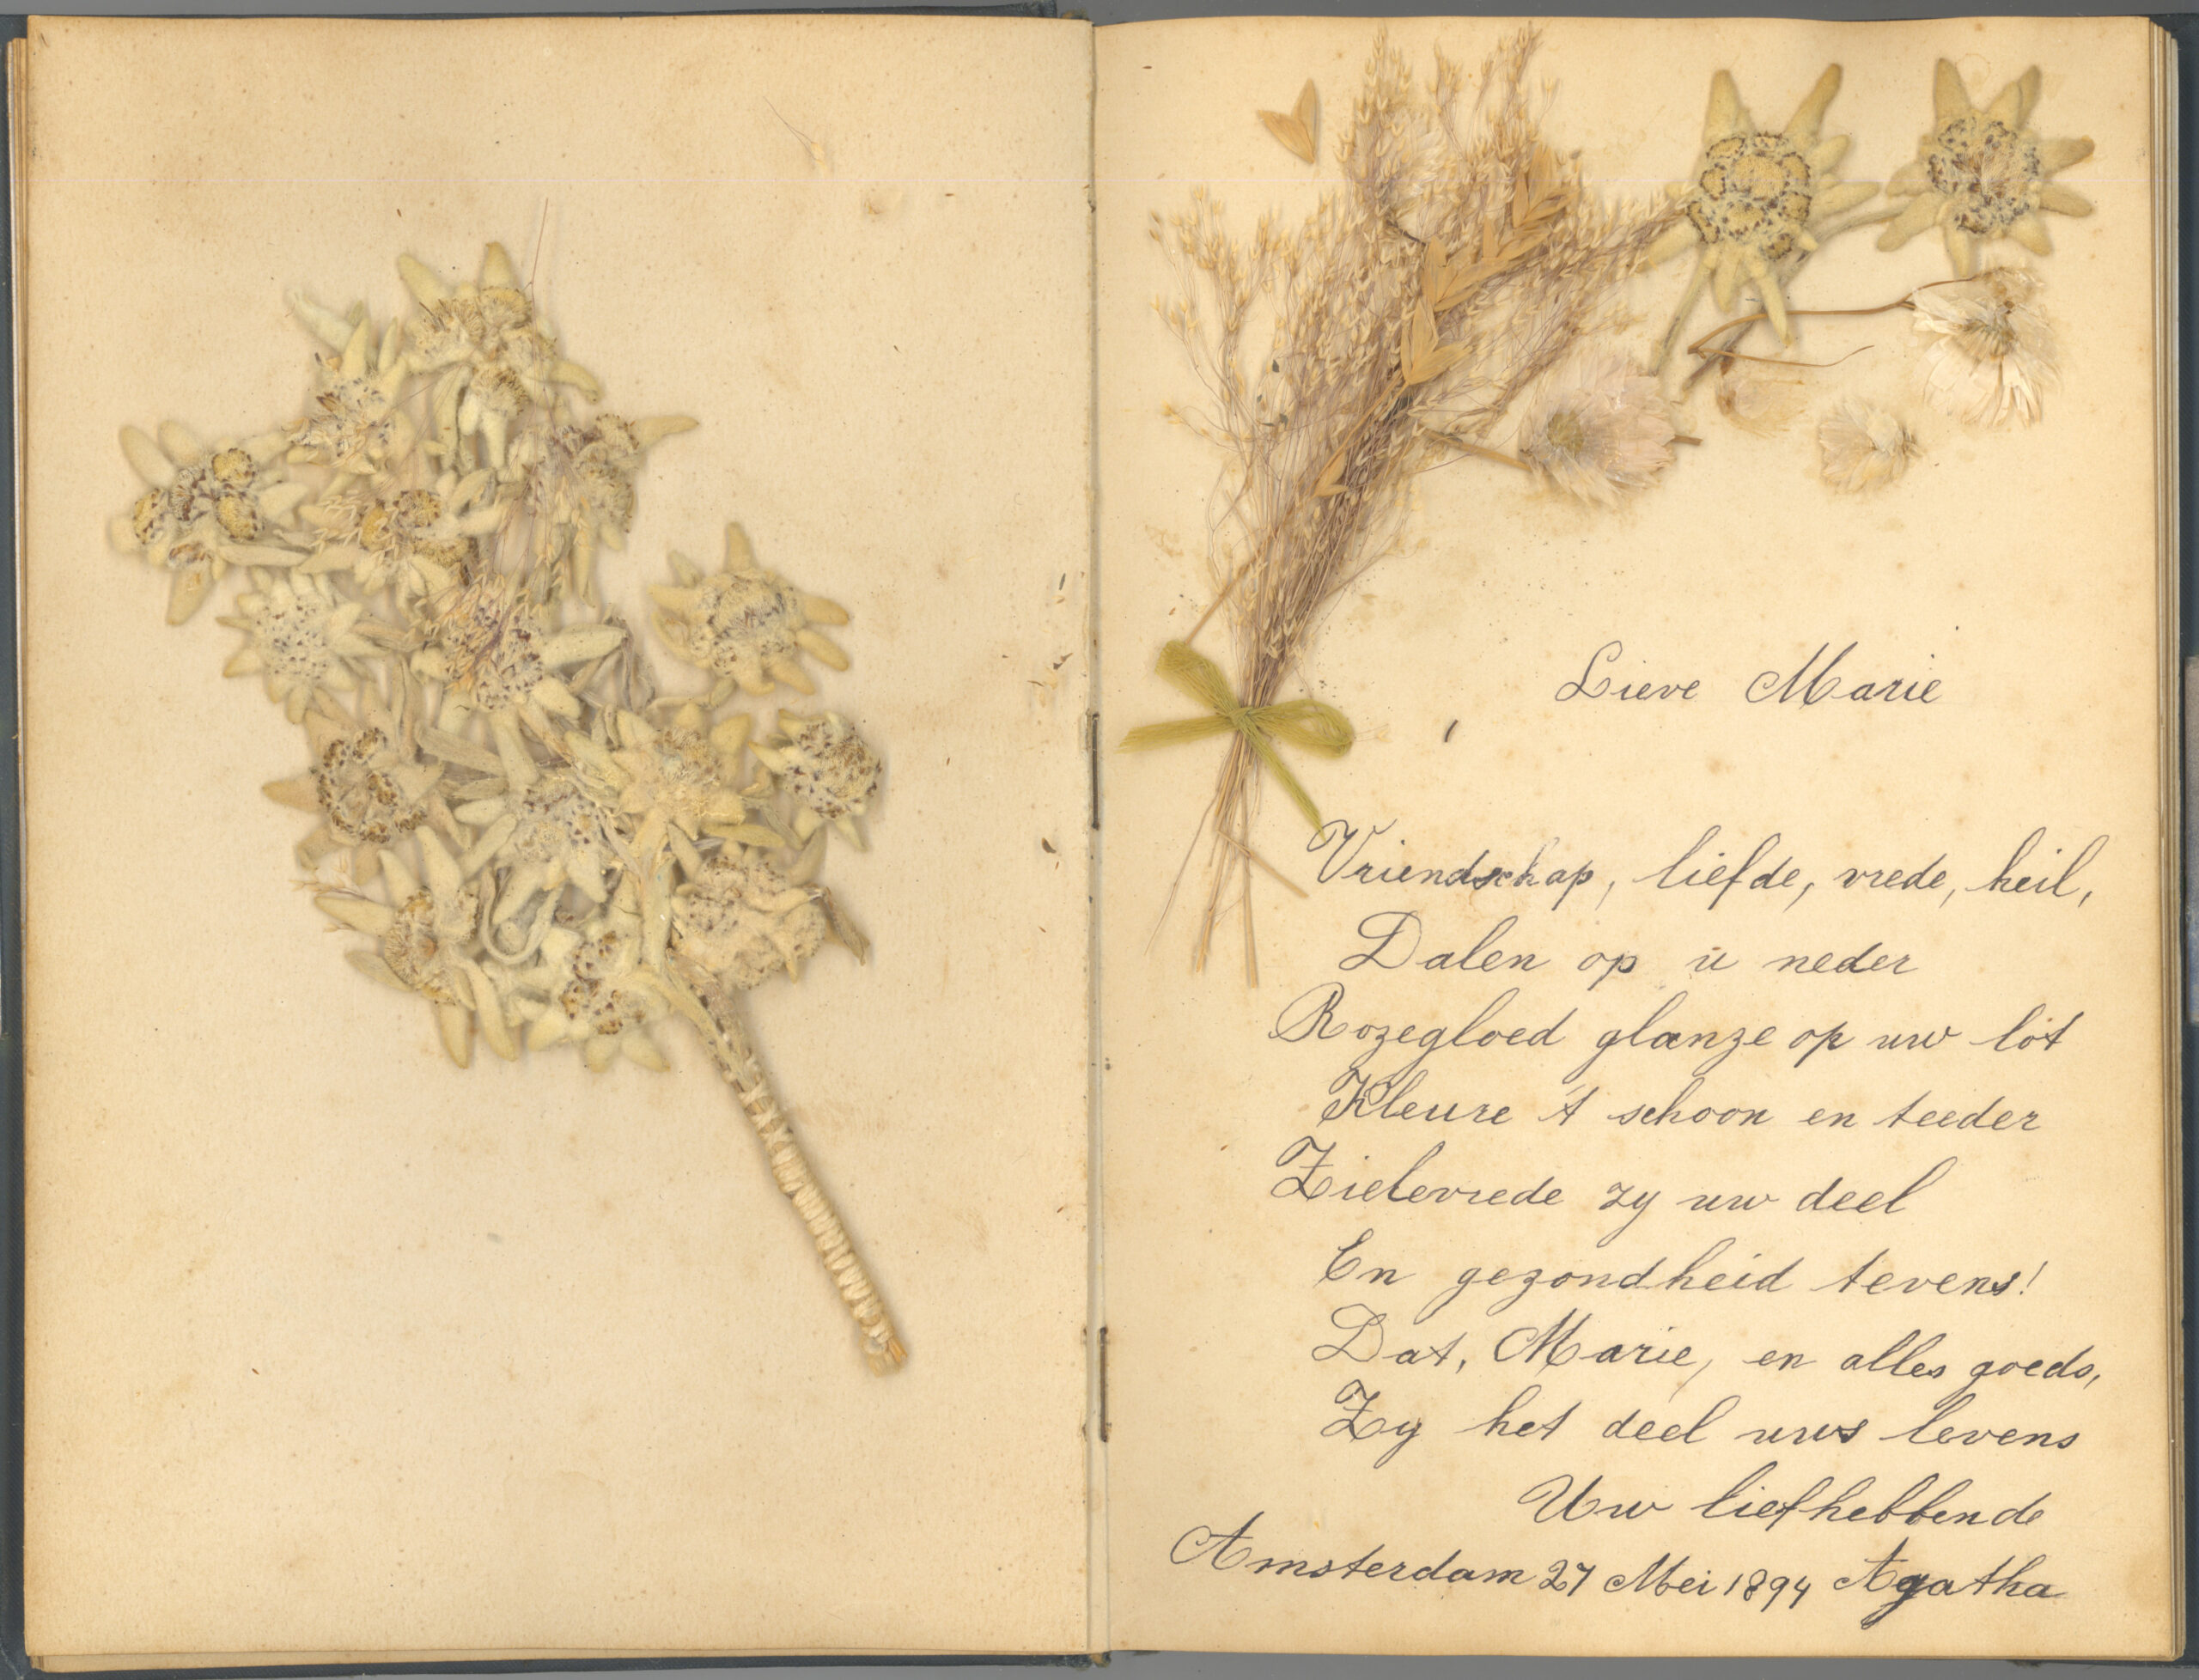 Lieve Marie
Vriendschap, liefde, vrede, heil,
Dalen op u neder
Rozegloed glanze op uw lot
Kleure 't schoon en teeder
Zielevrede zy uw deel
En gezondheid tevens!
Dat, Marie, en alles goeds,
Zy het deel uws levens
Uw liefhebbende
Amsterdam 27 Mei 1894 Agatha